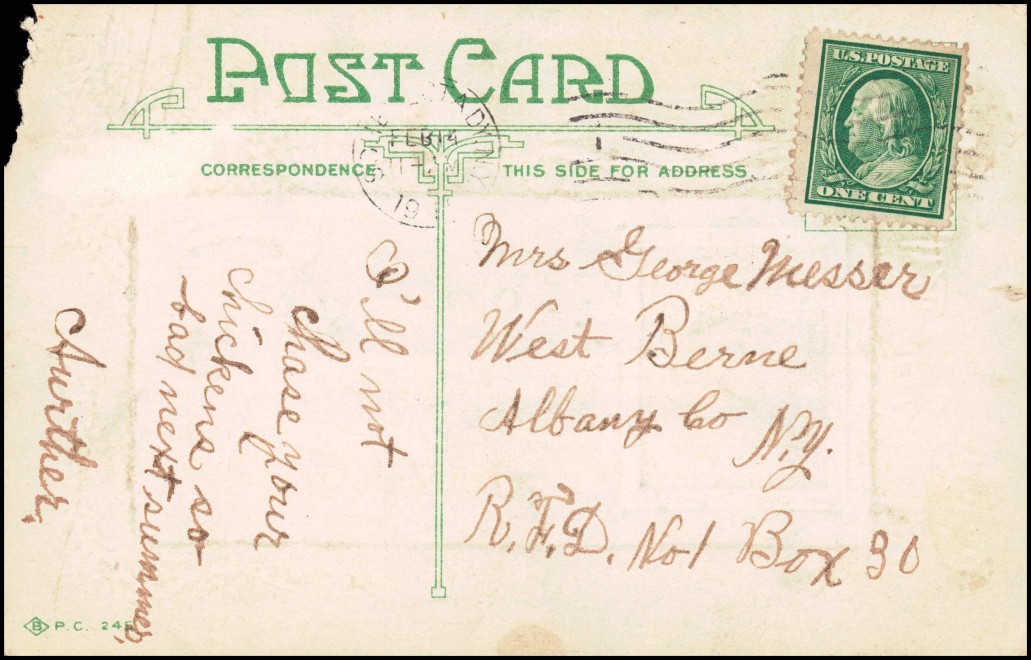 POST CARD
U.S. POSTAGE
ONE CENT
FEB 14
19
CORRESPONDENCE
THIS SIDE FOR ADDRESS
I'll not
chase your
chickens so
bad next summer,
Aurther.
Mrs George Messer
West Berne
Albany Co N.Y.
R.F.D. No 1 Box 30
B P.C. 24